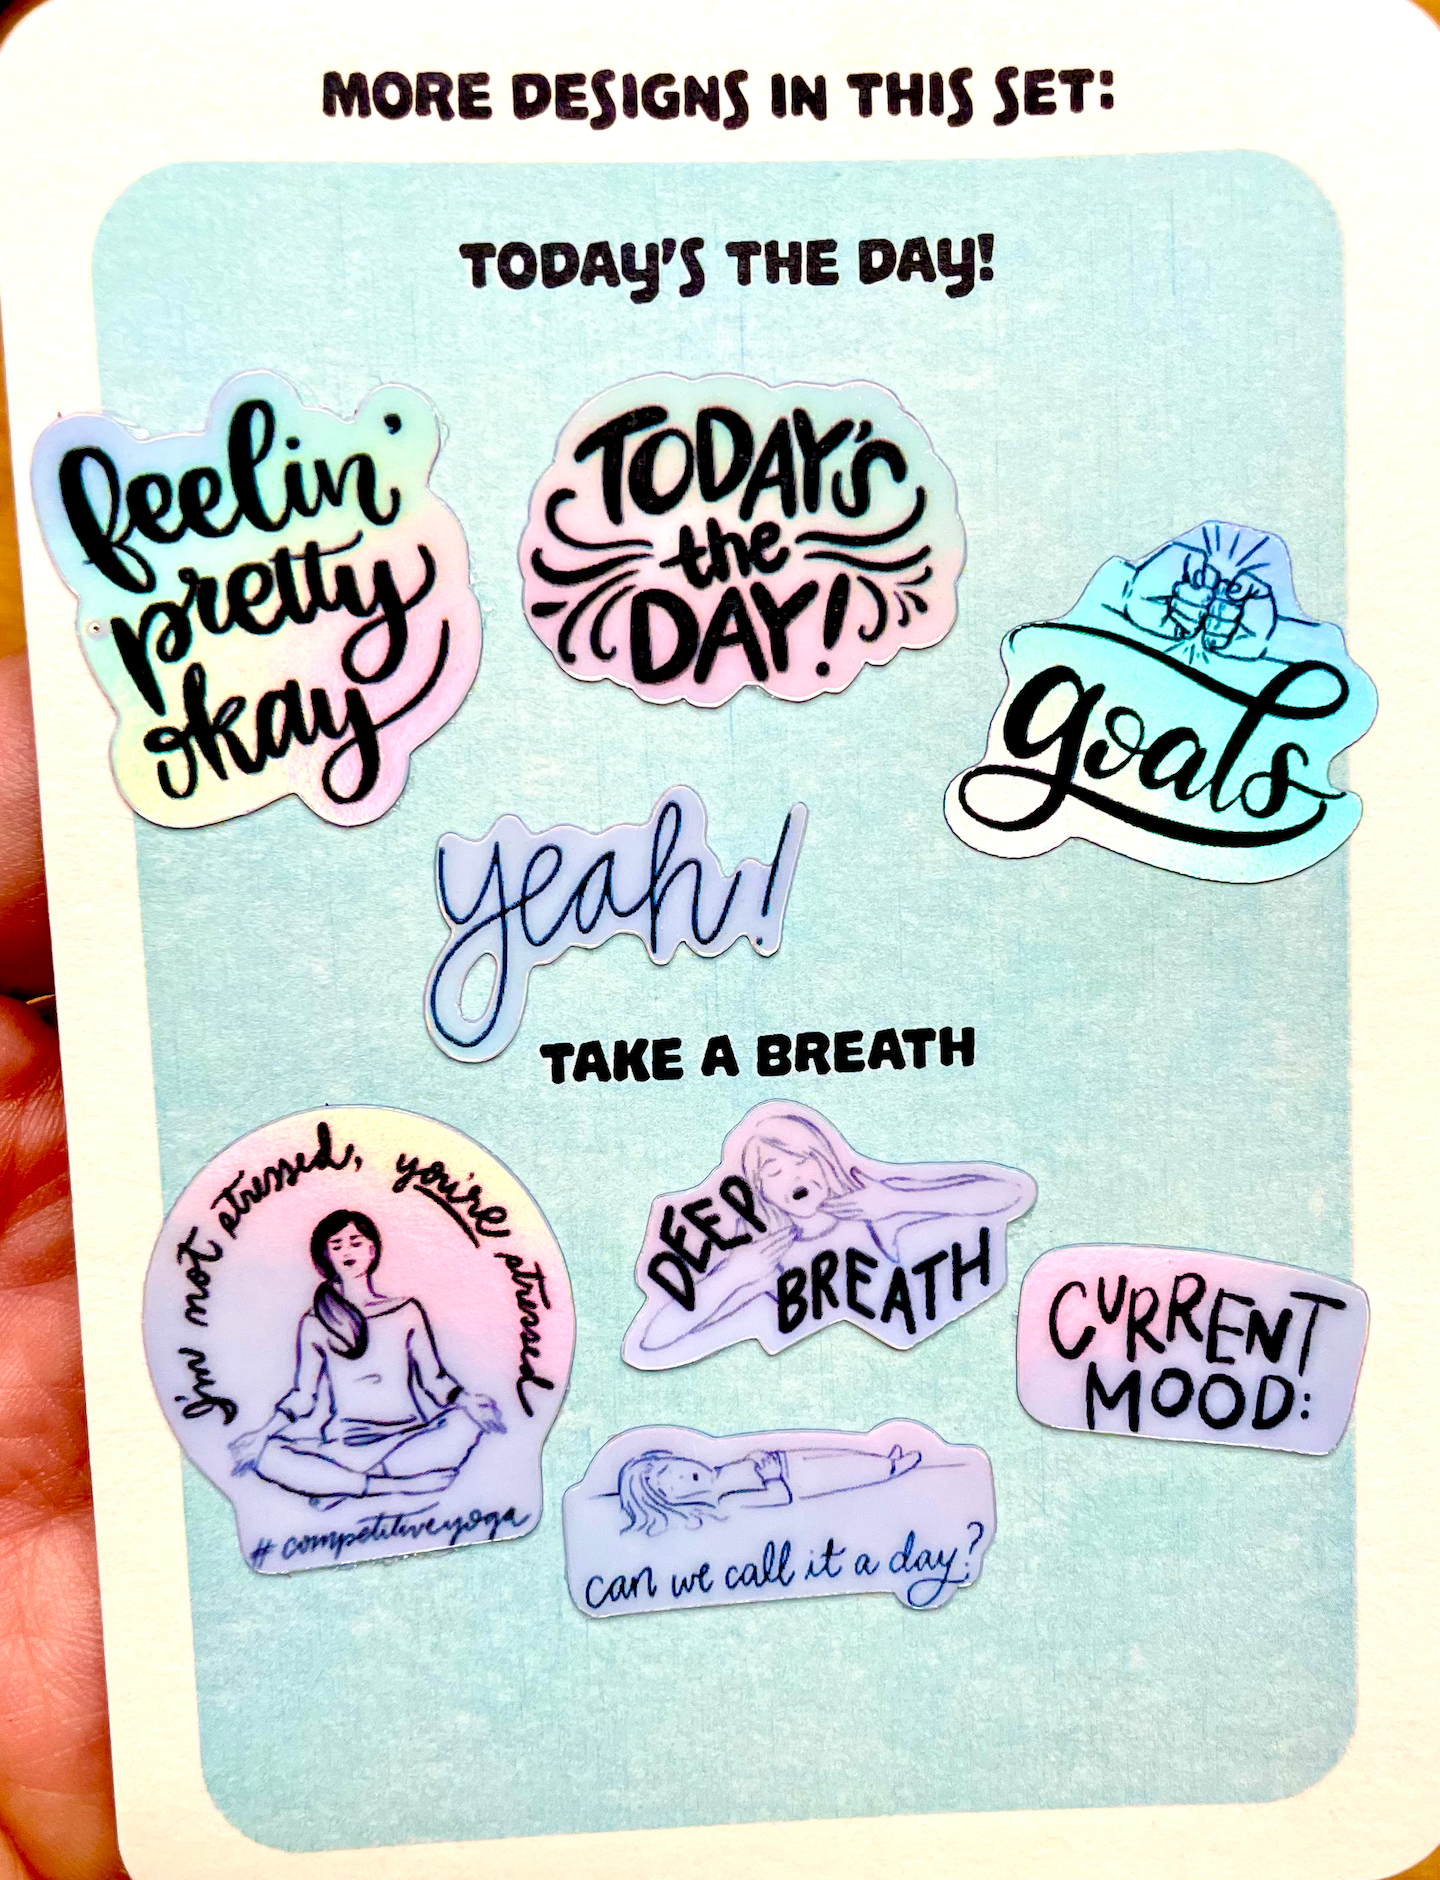 MORE DESIGNS IN THIS SET:
TODAY'S THE DAY!
feelin'
pretty
okay
TODAY'S
the
DAY!
goals
yeah!
TAKE A BREATH
I'm not stressed, you're stressed
#competitiveyoga
DEEP
BREATH
CURRENT
MOOD:
can we call it a day?